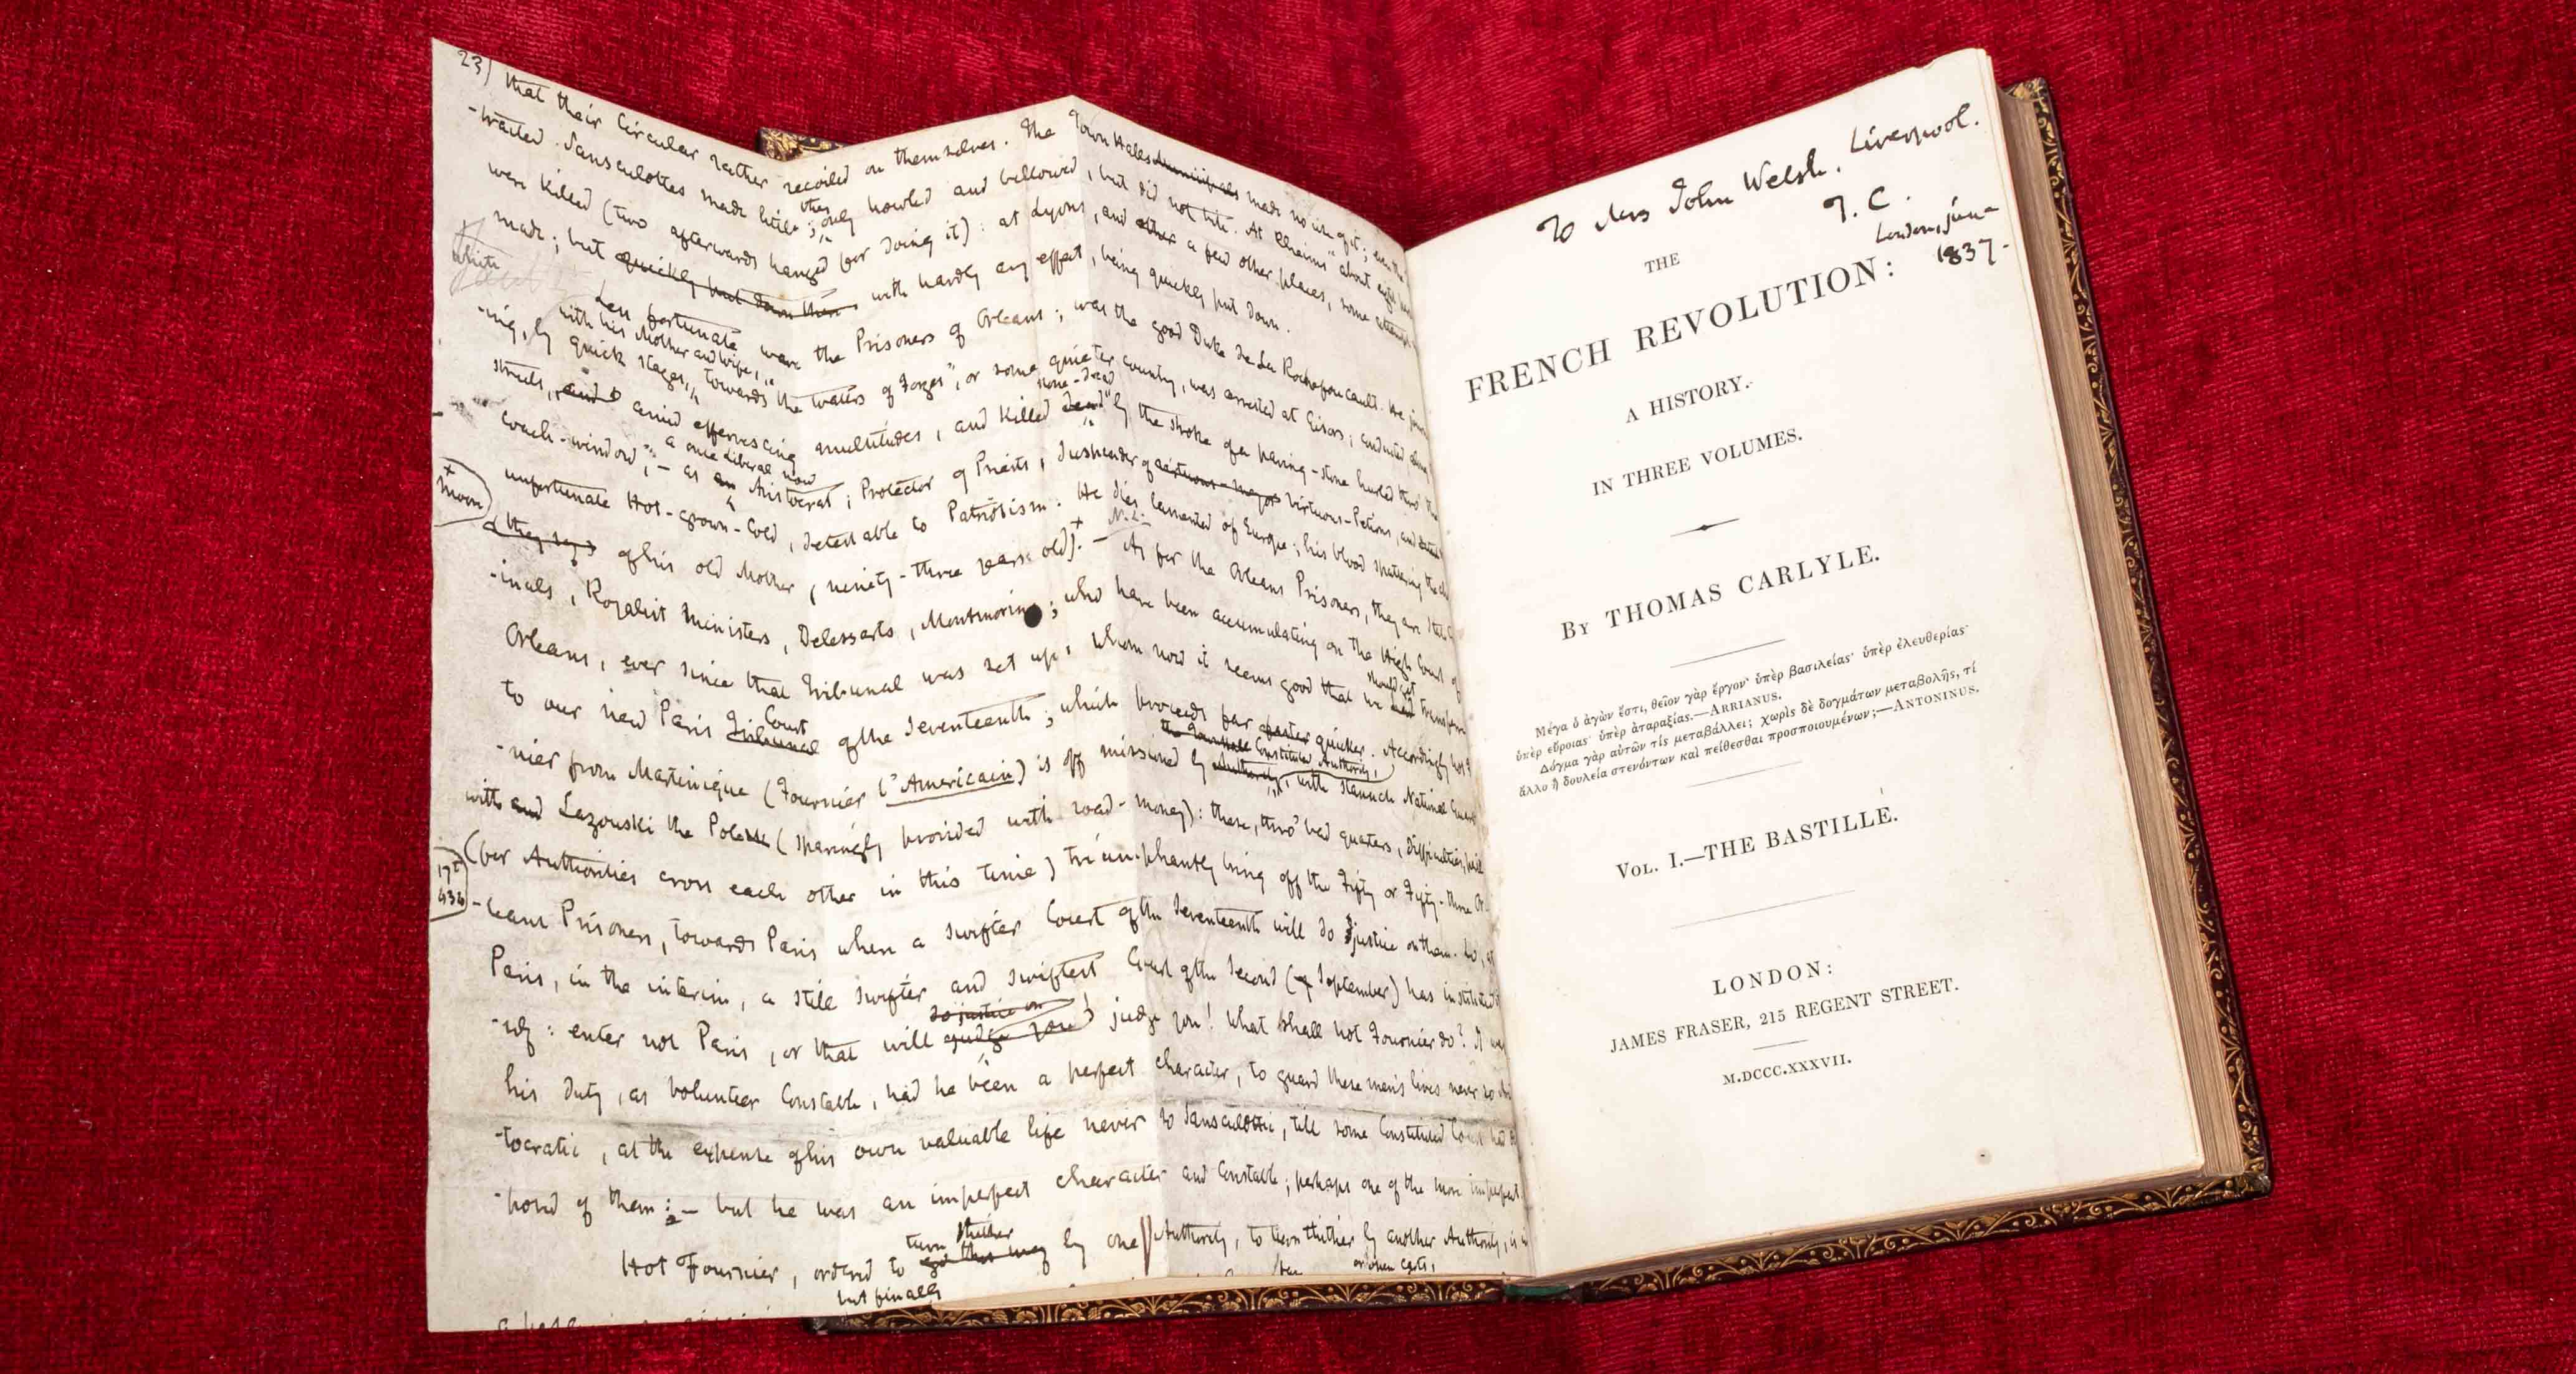 23) that their Circular rather recoiled on themselves. The Town Halls made no use of it; even the
-tracted Sansculottes made little; they only howled and bellowed, but did not bite. At Rheims "about eight
were killed (two afterwards hanged for doing it): at Lyons, and other a few other places, some attempt
made; but quickly put down then with hardly any effect, being quickly put down.
white
Less fortunate were the Prisoners of Orleans; was the good Duke de la Rochefoucault. He
with his Mother and Wife,
-ing, by quick stages, towards the waters of Forges", or some quieter country, was arrested at Gisors; conducted along
stone-dead
streets, and amid effervescing multitudes, and killed dead" by the stroke of a paving-stone hurled thro' the
a once Liberal now
coach-window; – as an Aristocrat; Protector of Priests, Suspender of virtuous-mayor virtuous Pétions, and
+ moon
unfortunate Hot-grown-cold, detestable to Patriotism. He dies lamented of Europe; his blood spattering the
they say of his old Mother, ninety-three years old). + – As for the Orleans Prisoners, they are State
-inals, Royalist Ministers, Delessarts, Montmorins; who have been accumulating on the High Court of
Orleans, ever since that Tribunal was set up: whom now it seems good that we should get transferred
Court
to our new Paris Tribunal of the Seventeenth; which proceeds far faster quicker. Accordingly hot
Constituted Authority,
-nier from Martinique (Fournier l'Americain) is off missioned by Authority, with staunch National Guards
with and Lazouski the Pole (sparingly provided with road-money): these, thro' bad quarters, difficulties,
(for Authorities cross each other in this time) triumphantly bring off the Fifty or Fifty-three Or
-leans Prisoners, towards Paris when a swifter Court of the Seventeenth will do justice on them. Lo, at
Paris, in the interim, a still swifter and swiftest Court of the Second (of September) has instituted
do justice on
-self: enter not Paris, or that will judge you judge you! What shall hot Fournier do? It was
his duty, as volunteer Constable, had he been a perfect character, to guard these men's lives never so Aris
-tocratic, at the expense of his own valuable life never so Sansculottic, till some Constituted Court had dis
-posed of them: – but he was an imperfect character and Constable; perhaps one of the more imperfect.
turn thither
Hot Fournier, ordered to go this way by one Authority, to turn thither by another Authority, is in
but finally
To Mrs John Welsh. Liverpool.
T. C.
London, June
1837-
THE
FRENCH REVOLUTION:
A HISTORY.
IN THREE VOLUMES.
BY THOMAS CARLYLE.
Μέγα ὁ ἀγὼν ἔστι, θεῖον γὰρ ἔργον· ὑπὲρ βασιλείας· ὑπὲρ ἐλευθερίας·
ὑπὲρ εὔροιας· ὑπὲρ ἀταραξίας.—ARRIANUS.
Δόγμα γὰρ αὐτῶν τίς μεταβάλλει; χωρὶς δὲ δογμάτων μεταβολῆς, τί
ἄλλο ἢ δουλεία στενόντων καὶ πείθεσθαι προσποιουμένων;—ANTONINUS.
VOL. I.—THE BASTILLE.
LONDON:
JAMES FRASER, 215 REGENT STREET.
M.DCCC.XXXVII.